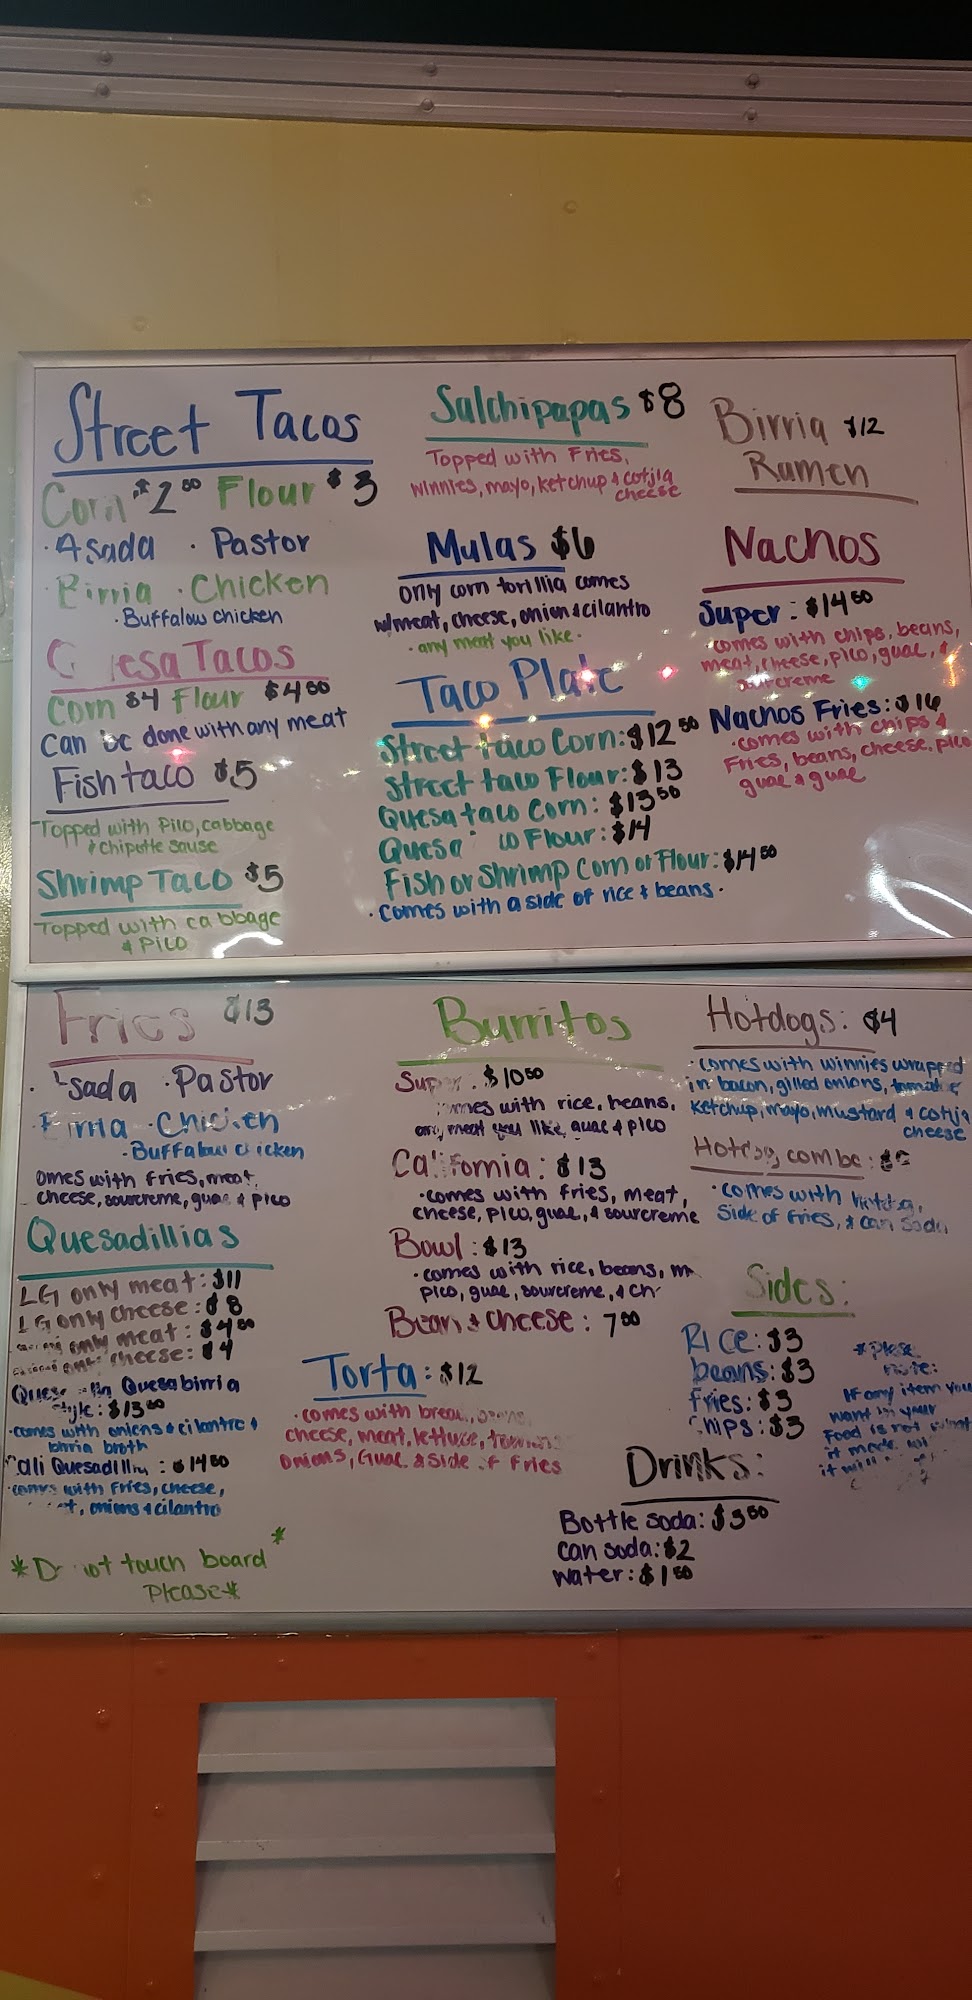 Street Tacos
Corn $2.50 Flour $3
· Asada · Pastor
Birria · Chicken
· Buffalow chicken
Tacos
Corn $4 Flour $4.50
Can be done with any meat
Fish taco $5
Topped with Pico, cabbage
& chipotle sause
Shrimp Taco $5
Topped with cabbage
& Pico
Salchipapas $8
Topped with Fries,
winnies, mayo, ketchup & cotija
cheese
Mulas $6
only corn torillia comes
w/meat, cheese, onion & cilantro
· any meat you like ·
Taco Plate
Street taco Corn: $12.50
Street taco Flour: $13
Quesa taco Corn: $13.50
Quesa Flour: $14
Fish or Shrimp Corn or Flour: $14.50
· comes with a side of rice & beans ·
Birria $12
Ramen
Nachos
Super: $14.50
· comes with chips, beans,
meat, cheese, pico, guac, &
sourcreme
Nachos Fries: $16
· comes with chips &
Fries, beans, cheese, pico
guac & guac
Fries $13
· Pastor
· Chicken
· Buffalow chicken
with fries, meat,
cheese, sourcreme, guac & pico
Quesadillias
LG only meat: $11
LG only cheese: $8
only meat: $4.50
cheese: $4
Quesabirria
style: $13.50
· comes with onions & cilantro &
birria broth
Quesadillia: $14.50
· comes with fries, cheese,
onions & cilantro
* Do not touch board *
Please *
Burritos
Super: $10.50
comes with rice, beans,
any meat you like, guac & pico
California: $13
· comes with fries, meat,
cheese, pico, guac, & sourcreme
Bowl: $13
· comes with rice, beans,
pico, guac, sourcreme, &
Bean & cheese: 7.00
Torta: $12
· comes with
cheese, meat, lettuce,
onions, Guac & side of fries
Hotdogs: $4
· comes with winnies wrapped
in bacon, gilled onions, tomatoe,
ketchup, mayo, mustard & cotija
cheese
Hotdog combo:
· comes with hotdog,
side of fries, & can soda
Sides:
Rice: $3
beans: $3
fries: $3
chips: $3
* please
note:
If any item you
want in your
Food is not
it
it will
Drinks:
Bottle soda: $3.50
can soda: $2
water: $1.50